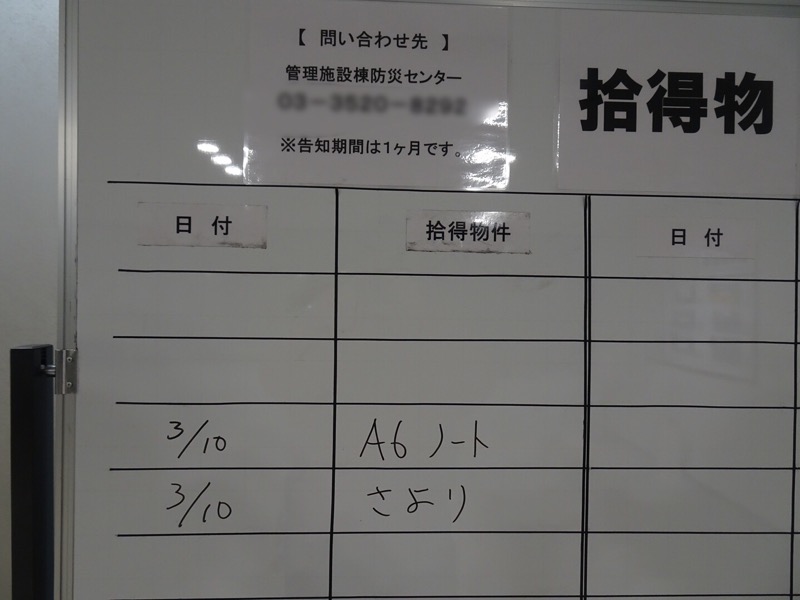 【 問い合わせ先 】
管理施設棟防災センター
※告知期間は1ヶ月です。
拾得物
日 付
拾得物件
日 付
3/10
A6 ノート
3/10
さより